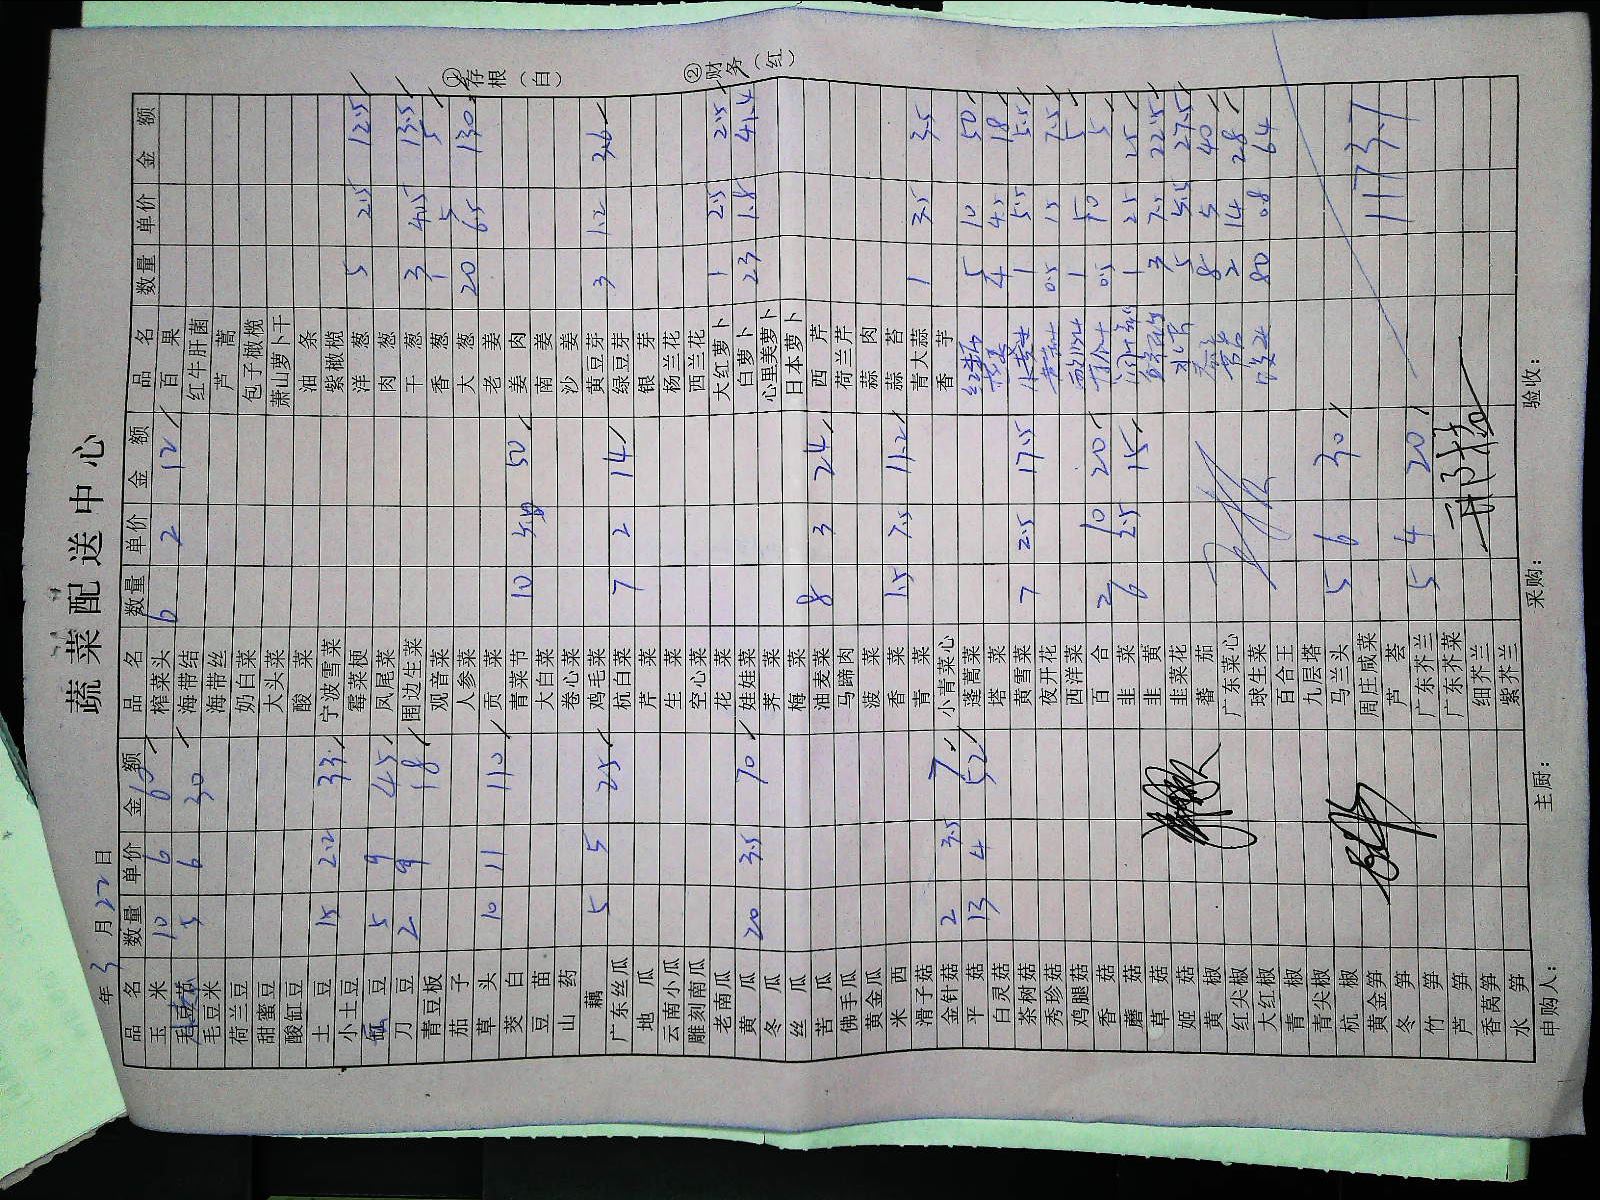 蔬菜配送中心
年 3 月 22 日
①存根（白）
②财务（红）
品名 数量 单价 金额 品名 数量 单价 金额 品名 数量 单价 金额
玉米 10 6 60
5 6 30
毛豆米
荷兰豆
甜蜜豆
酸缸豆
土豆 15 2.2 33
小土豆
豆 5 9 45
刀豆 2 9 18
青豆板
茄子
草头 10 11 110
茭白
豆苗
山药
藕 5 5 25
广东丝瓜
地瓜
云南小瓜
雕刻南瓜
老南瓜
黄瓜 20 3.5 70
冬瓜
丝瓜
苦瓜
佛手瓜
黄金瓜
米西
滑子菇
金针菇 2 3.5 7
平菇 13 4 52
白灵菇
茶树菇
秀珍菇
鸡腿菇
香菇
蘑菇
草菇
姬菇
黄椒
红尖椒
大红椒
青椒
青尖椒
杭椒
黄金笋
冬笋
竹笋
芦笋
香莴笋
水笋
榨菜头 6 2 12
海带结
海带丝
奶白菜
大头菜
酸菜
宁波雪菜
霉菜梗
凤尾菜
围边生菜
观音菜
人参菜
贡菜
青菜节 10 50
大白菜
卷心菜
鸡毛菜
杭白菜 7 2 14
芹菜
生菜
空心菜
花菜
娃娃菜
荠菜
梅菜
油麦菜 8 3 24
马蹄肉
菠菜
香菜 1.5 7.5 11.2
青菜
小青菜心
蓬蒿菜
塔菜
黄雪菜 7 2.5 17.5
夜开花
西洋菜
百合 2 10 20
韭菜 6 2.5 15
韭黄
韭菜花
蕃茄
广东菜心
球生菜
百合王
九层塔
马兰头 5 6 30
周庄咸菜
芦荟
广东芥兰 5 4 20
广东芥菜
细芥兰
紫芥兰
百果
红牛肝菌
芦蒿
包子橄榄
萧山萝卜干
油条
紫橄榄
洋葱 5 2.5 12.5
肉葱
干葱 3 4.5 13.5
香葱 1 5 5
大葱 20 6.5 130
老姜
姜肉
南姜
沙姜
黄豆芽 3 1.2 3.6
绿豆芽
银芽
杨兰花
西兰花
大红萝卜 1 2.5 2.5
白萝卜 23 1.8 41.4
心里美萝卜
日本萝卜
西芹
荷兰芹
蒜肉
蒜苔
青大蒜 1 3.5 3.5
香芋
5 10 50
4 4.5 18
1 5.5 5.5
0.5 15 7.5
1 5 5
0.5 10 5
1 25 25
3 7.5 22.5
5 5.5 27.5
8 5 40
2 14 28
80 0.8 64
1173.7
申购人： 主厨： 采购： 验收：